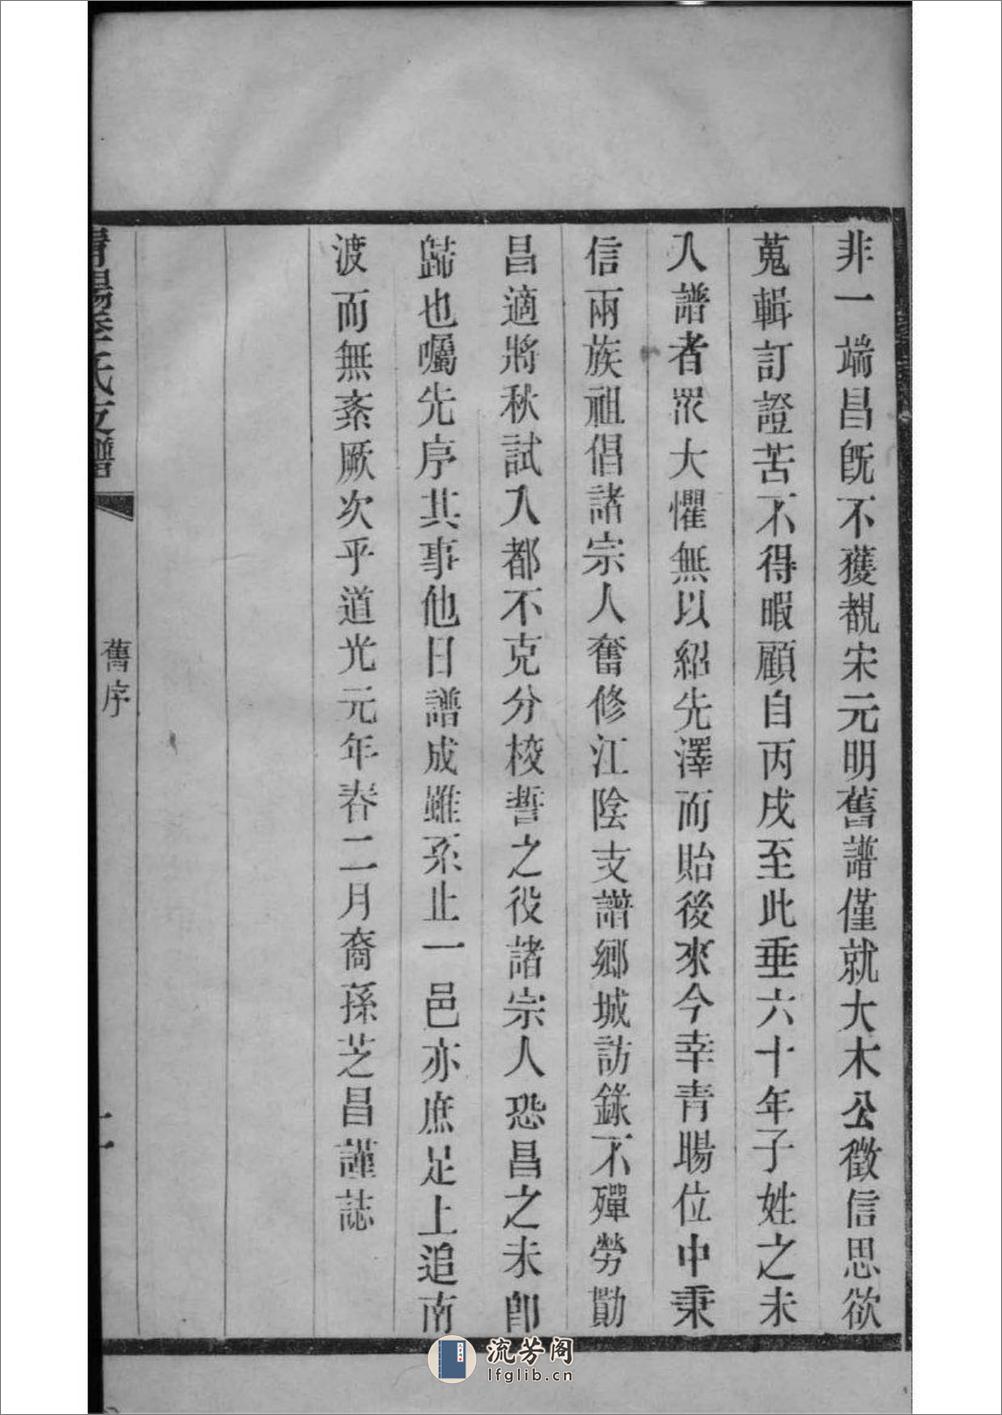 非一端昌旣不獲覩宋元明舊譜僅就大木公徵信思欲
蒐輯訂證苦不得暇顧自丙戌至此垂六十年子姓之未
入譜者眾大懼無以紹先澤而貽後來今幸青暘位中秉
信兩族祖倡諸宗人奮修江陰支譜鄉城訪錄不殫勞勩
昌適將秋試入都不克分校讐之役諸宗人恐昌之未卽
歸也囑先序其事他日譜成雖系止一邑亦庶足上追南
渡而無紊厥次乎道光元年春二月裔孫芝昌謹誌
氏支譜
舊序
流芳阁
lfglib.cn